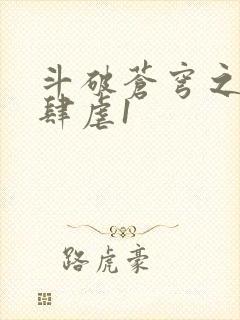 斗破苍穹之
肆虐1
路虎豪